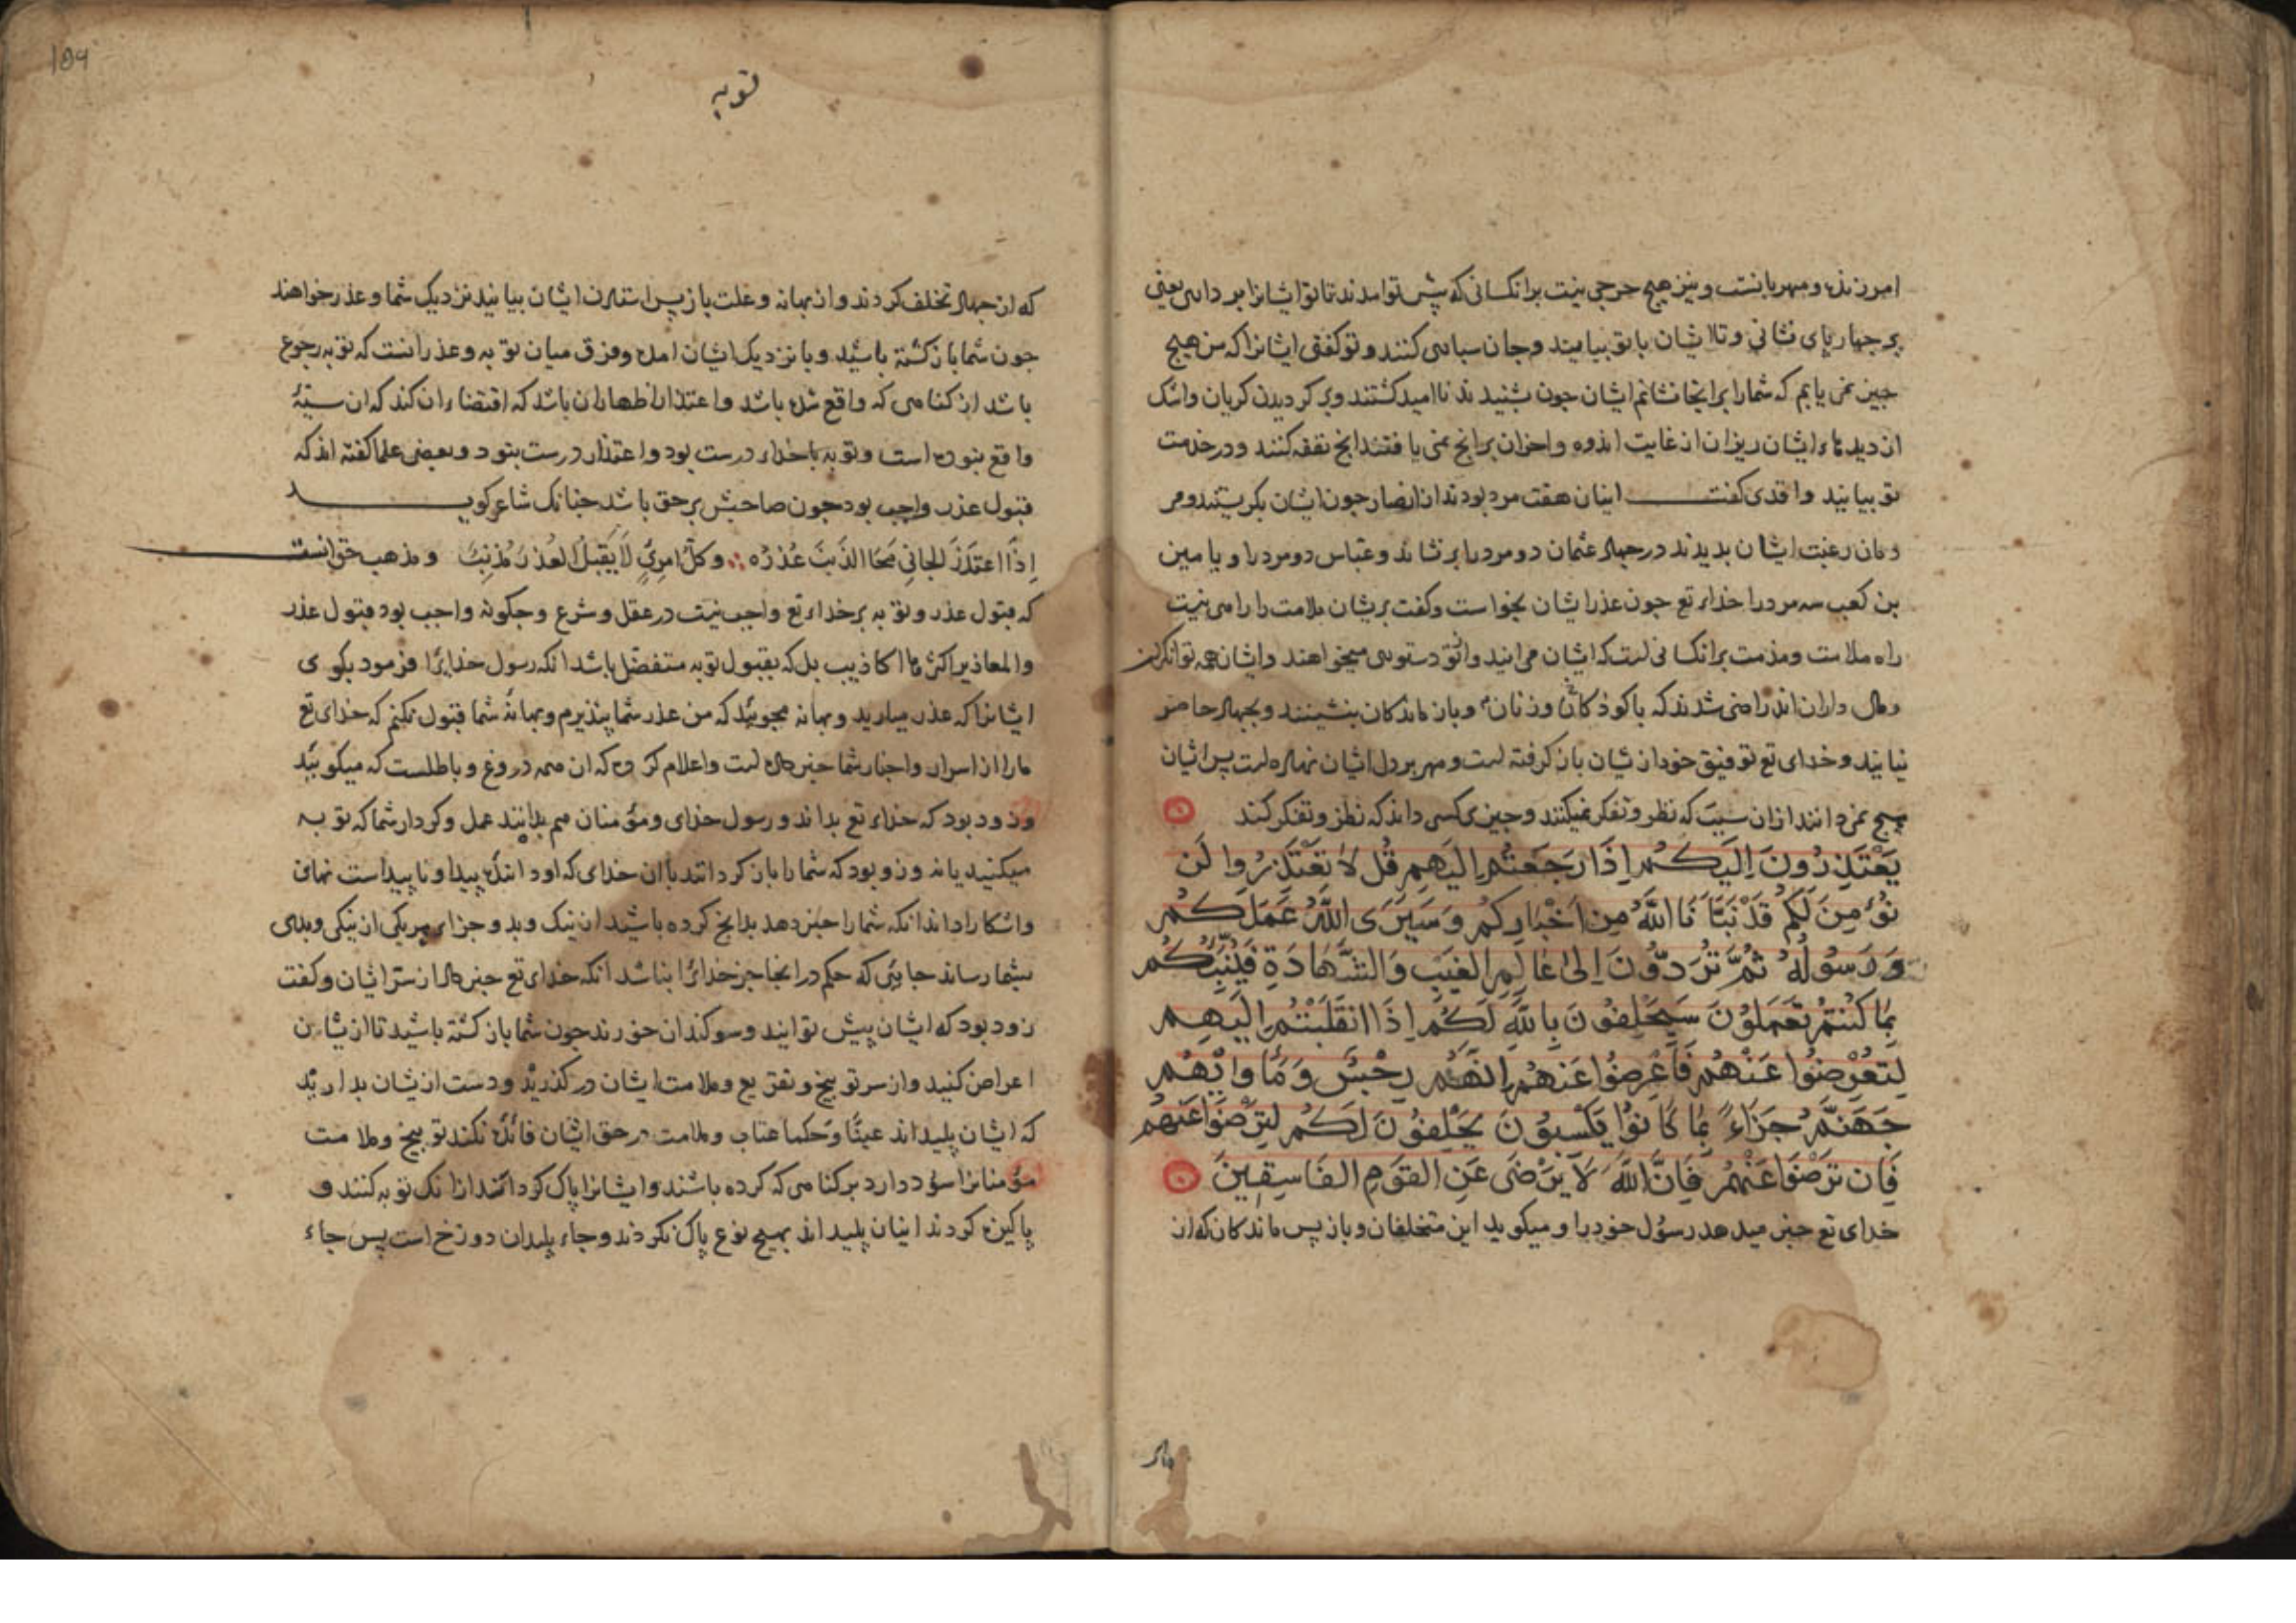 امرزنده و مهربانست و نیز هیچ حرجی نیست برانکسانی که پیش تو امدند تا تو ایشانرا بر داری یعنی
بر چهارپای نشانی و تا ایشان با تو بیایند وجان سپاری کنند و تو کفتی ایشانرا که من هیچ
جیز نمی یابم که شمارا برانجا نشانم ایشان جون بشنیدند نا امید کشتند و بر کردیدن کریان واشک
از دیدهاء ایشان ریزان از غایت اندوه و احزان برانج نمی یافتند انج نفقه کنند و در خدمت
تو بیایند واقدی کفت اینان هفت مرد بودند از انصار جون ایشان بکریستند و مر
دمان رغبت ایشان بدیدند در جهاد عثمان دو مرد را بر نشاند و عباس دو مرد را و یامین
بن کعب سه مرد را خداء تع جون عذر ایشان بخواست و کفت بریشان ملامت را راهی نیست
راه ملامت و مذمت برانکسانی است که ایشان می ایند واز تو دستوری میخواهند وایشان همه توانکران
و مال داران اند راضی شدند که با کوذکان و زنان و باز ماندکان بنشینند و بجهاد حاضر
نیایند و خدای تع توفیق خود از یشان باز کرفته است و مهر بر دل ایشان نهاده است پس ایشان
هیچ نمی دانند ازان سبب که نظر و تفکر نمیکنند و جیزی کسی داند که نظر و تفکر کند
يَعْتَذِرُونَ اِلَيْكُمْ اِذَا رَجَعْتُمْ اِلَيْهِمْ قُل لَا تَعْتَذِرُوا لَن
نُؤْمِنَ لَكُمْ قَدْ نَبَّاَنَا اللَّهُ مِن اَخْبَارِكُمْ وَسَيَرَى اللَّهُ عَمَلَكُمْ
وَرَسُولُهُ ثُمَّ تُرَدُّونَ اِلىٰ عَالِمِ الْغَيْبِ وَالشَّهَادَةِ فَيُنَبِّئُكُمْ
بِمَا كُنْتُمْ تَعْمَلُونَ سَيَحْلِفُونَ بِاللَّهِ لَكُمْ اِذَا انْقَلَبْتُمْ اِلَيْهِمْ
لِتُعْرِضُوا عَنْهُمْ فَاَعْرِضُوا عَنْهُمْ اِنَّهُمْ رِجْسٌ وَمَأْوَاهُمْ
جَهَنَّمُ جَزَاءً بِمَا كَانُوا يَكْسِبُونَ يَحْلِفُونَ لَكُمْ لِتَرْضَوْا عَنْهُمْ
فَاِن تَرْضَوْا عَنْهُمْ فَاِنَّ اللَّهَ لَا يَرْضَى عَنِ الْقَوْمِ الْفَاسِقِينَ
خدای تع خبر میدهد رسول خود را و میکوید این متخلفان و باز پس ماندکان که از
توبه
که از جهاد تخلف کردند و از بهانه و علت باز پس استادن ایشان بیایند نزدیک شما و عذر خواهند
جون شما باز کشته باشید و با نزدیک ایشان امده و فرق میان توبه و عذر انست که توبه رجوع
باشد از کناهی که واقع شده باشد و اعتذار اظهار ان باشد که اقتضاء ان کند که ان سیئه
واقع نبوده است و توبه با خداء درست بود و اعتذار درست نبود و بعضی علما کفته اند که
قبول عذر واجب بود جون صاحبش بر حق باشد جنانک شاعر کوید
اِذَا اعتَذَرَ الجانی مَحَا الذَنبَ عُذرُه وَکلُّ امرِیٍ لَا یَقبَلُ العُذرَ مُذنِبُ و مذهب حق انست
که قبول عذر و توبه بر خداء تع واجب نیست در عقل و شرع و جکونه واجب بود قبول عذر
والمعاذیر اکثرها اکاذیب بل که بقبول توبه متفضل باشد انکه رسول خدایرا فرمود بکوی
ایشانرا که عذر میارید و بهانه مجوئید که من عذر شما پنذیرم و بهانهٔ شما قبول نکنم که خدای تع
مارا از اسرار و اخبار شما خبر داده است و اعلام کرده که ان همه دروغ و باطلست که میکوئید
و زود بود که خداء تع بداند و رسول خدای و مؤمنان هم بدانند عمل و کردار شما که توبه
میکنید یا نه و زود بود که شما را باز کردانند با ان خدای که او دانندهٔ پیدا و نا پیداست نهان
واشکارا داند انکه شما را خبر دهد بدانج کرده باشید از نیک و بد و جزاء هر یکی از نیکی و بدی
بشما رساند جایئی که حکم در انجا جز خدائرا نباشد انکه خدای تع خبر داد از سّر ایشان و کفت
زود بود که ایشان پیش تو ایند و سوکندان خورند جون شما باز کشته باشید تا از یشان
اعراض کنید واز سر توبیخ و تقریع و ملامت ایشان در کذرید و دست از یشان بدارید
که ایشان پلید اند عینًا و حکما عتاب و ملامت در حق ایشان فائده نکند توبیخ و ملامت
مؤمنانرا سود دارد بر کناهی که کرده باشند و ایشانرا پاک کرداند ازانک توبه کنند و
پاکیزه کردند اینان پلید اند بهیج نوع پاک نکردند و جاء پلیدان دوزخ است پس جاء